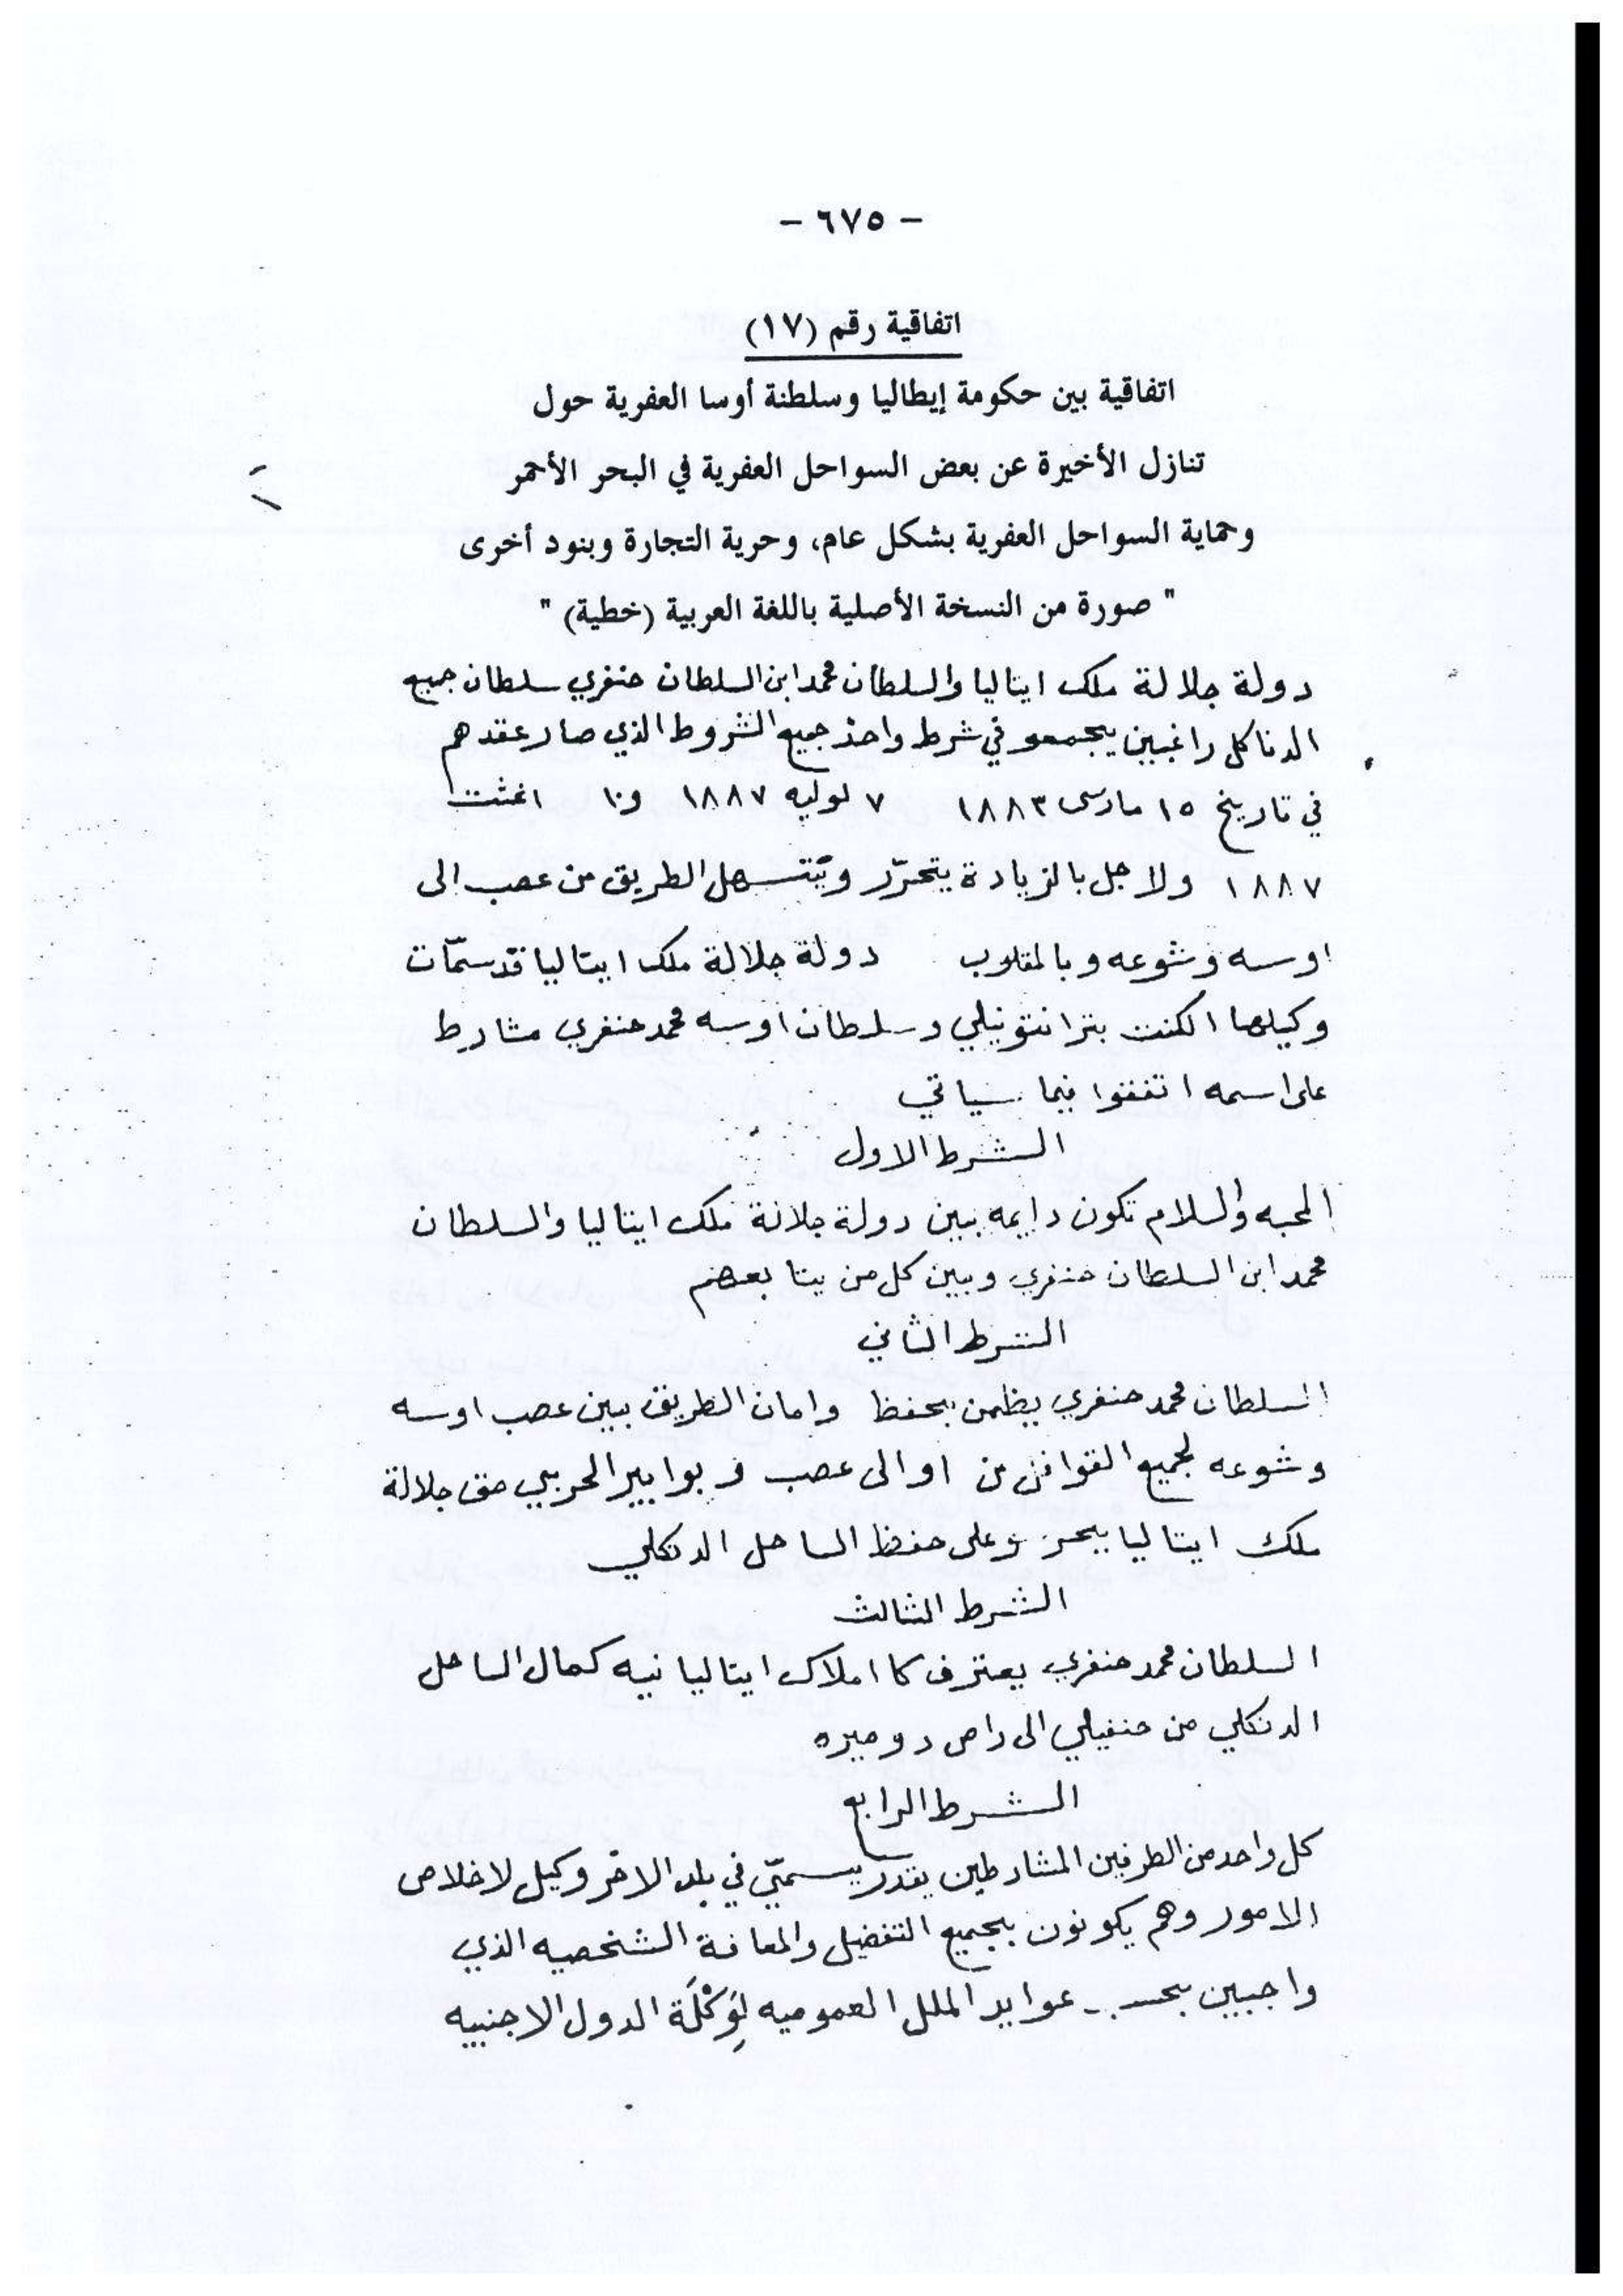 - ٦٧٥ -
اتفاقية رقم (١٧)
اتفاقية بين حكومة إيطاليا وسلطنة أوسا العفرية حول
تنازل الأخيرة عن بعض السواحل العفرية في البحر الأحمر
وحماية السواحل العفرية بشكل عام، وحرية التجارة وبنود أخرى
" صورة من النسخة الأصلية باللغة العربية (خطية) "
دولة جلالة ملك ايتاليا والسلطان محمد ابن السلطان حنفري سلطان جميع
الدناكل راغبين يجمعو في شرط واحد جميع الشروط الذي صار عقدهم
في تاريخ ١٥ مارس ١٨٨٣ ٧ لوليه ١٨٨٧ و١٠ اغشت
١٨٨٧ ولاجل بالزيادة يتحرّر ويتسهل الطريق من عصب الى
اوسه وشوعه وبالمقلوب دولة جلالة ملك ايتاليا قد سمّات
وكيلها الكنت بترا نتونيلي وسلطان اوسه محمد حنفري مشارط
على اسمه اتفقوا فيما سياتي
الشرط الاول
المحبه والسلام تكون دايمه بين دولة جلالة ملك ايتاليا والسلطان
محمد ابن السلطان حنفري وبين كل من يتابعهم
الشرط الثاني
السلطان محمد حنفري يظمن بحفظ وامان الطريق بين عصب اوسه
وشوعه لجميع القوافل من او الى عصب و بوابير الحربي حق جلالة
ملك ايتاليا على حفظ الساحل الدنكلي
الشرط الثالث
السلطان محمد حنفري يعترف كا املاك ايتاليانيه كمال الساحل
الدنكلي من حنفيلي الى راص دوميره
الشرط الرابع
كل واحد من الطرفين المشارطين يقدر يسمّي في بلد الاخر وكيل لاخلاص
الامور وهم يكونون بجميع التفضيل والمعافة الشخصيه الذي
واجبين بحسب عوايد الملل العموميه لِوَكْلَة الدول الاجنبيه